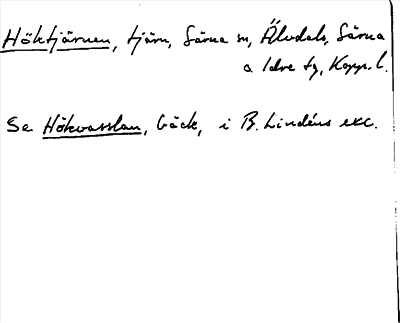 Höktjärnen, tjärn, Särna sn, Älvdals, Särna
o Idre tg, Kopp. l.
Se Hökvasslan, bäck, i B. Lindéns exc.